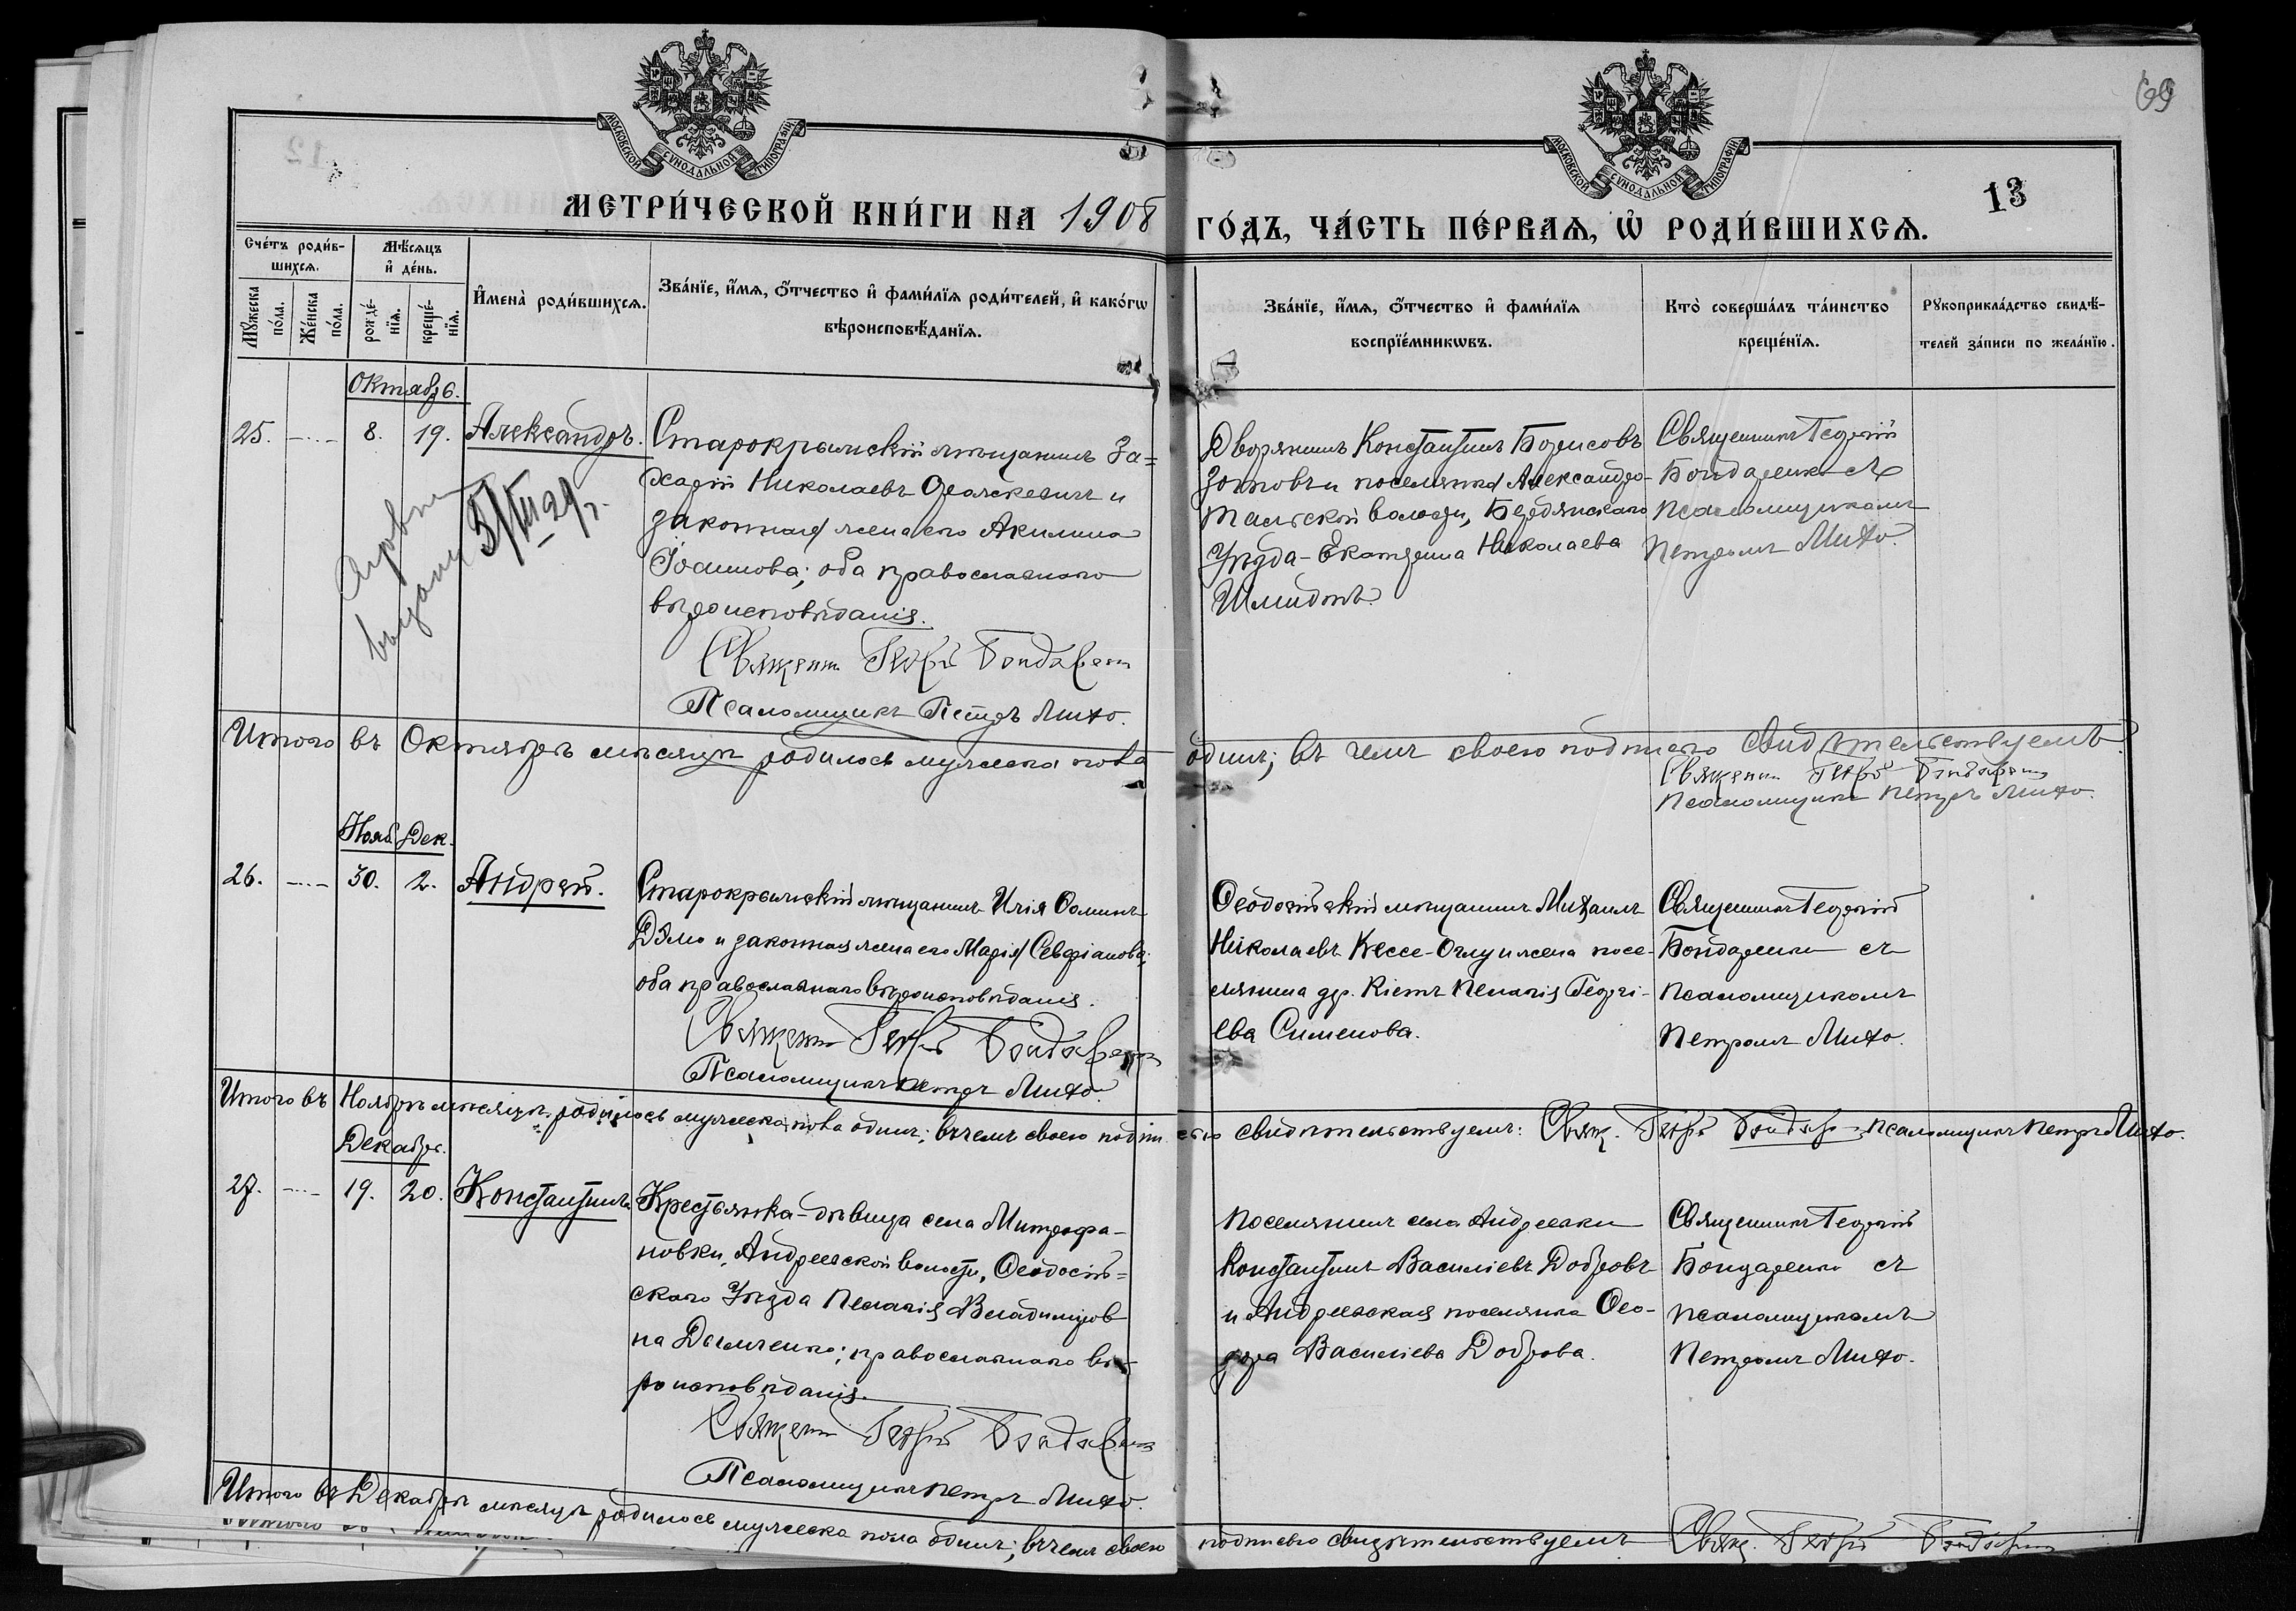 69
13
МОСКОВСКОЙ СУНОДАЛЬНОЙ ТИПОГРАФІИ
МОСКОВСКОЙ СУНОДАЛЬНОЙ ТИПОГРАФІИ
МЕТРИ́ЧЕСКОЙ КНИ́ГИ НА 1908
ГО́ДЪ, ЧА́СТЬ ПЕ́РВАѦ, Ѡ҆ РОДИ́ВШИХСѦ.
Сче́тъ роди́в-
шихсѧ.
Мꙋ́жеска
по́ла.
Же́нска
по́ла.
Мѣ́сѧцъ
и҆ де́нь.
рожде́-
нїѧ.
креще́-
нїѧ.
И҆мена̀ роди́вшихсѧ.
Зва́нїе, и҆́мѧ, ѻ҆́тчество и҆ фами́лїѧ роди́телей, и҆ како́гѡ
вѣроисповѣ́данїѧ.
Зва́нїе, и҆́мѧ, ѻ҆́тчество и҆ фами́лїѧ
воспрїе́мникѡвъ.
Кто̀ соверша́лъ та́инство
креще́нїѧ.
Рꙋкоприкла́дство свидѣ́-
телей за́писи по жела́нїю.
Октябр.
25. 8. 19. Александръ.
Старокрымскій мѣщанинъ За=
харій Николаевъ и
законная жена его Акилина
Іоаннова; оба православнаго
вѣроисповѣданія.
Священ. Георгій Бондарен
Псаломщикъ Петръ Михо.
выдан 5/VII 29 г.
Дворянинъ Константинъ Борисовъ
Зотовъ и поселянка Александро-
тальской волости, Бердянскаго
Уѣзда - Екатерина Николаева
Шмидтъ.
Священникъ Георгій
Бондаренко съ
псаломщикомъ
Петромъ Михо.
Итого въ Октябрѣ мѣсяцѣ родилось мужеска пола одинъ; въ чемъ своею подписью свидѣтельствуемъ
Священ. Георгій Бондарен
Псаломщикъ Петръ Михо.
Нояб. Дек.
26. 30. 2. Андрей.
Старокрымскій мѣщанинъ Илія Ѳоминъ
Дѣмо и законная жена его Марія Севфіанова;
оба православнаго вѣроисповѣданія.
Священ. Георгій Бондарен
Псаломщикъ Петръ Михо.
Ѳеодосійскій мѣщанинъ Михаилъ
Николаевъ Кессе-Оглу и жена посе-
лянина дер. Кіетъ Пелагія Георгі-
ева Сименова.
Священникъ Георгій
Бондаренко съ
псаломщикомъ
Петромъ Михо.
Итого въ Ноябрѣ мѣсяцѣ родилось мужеска пола одинъ; въ чемъ своею подписью свидѣтельствуемъ: Свящ. Георгій Бондар псаломщикъ Петръ Михо.
Декабр.
27. 19. 20. Константинъ.
Крестьянка-дѣвица села Митрофа-
новки, Андреевской волости, Ѳеодосій=
скаго Уѣзда Пелагія Владимиров
на Дымченко; православнаго вѣ-
роисповѣданія.
Священ Георгій Бондарен
Псаломщикъ Петръ Михо.
Поселянинъ села Андреевки
Константинъ Василіевъ Добровъ
и Андреевская поселянка Ѳео-
дора Василіева Доброва.
Священникъ Георгій
Бондаренко съ
псаломщикомъ
Петромъ Михо.
Итого въ Декабрѣ мѣсяцѣ родилось мужеска пола одинъ; въ чемъ своею подписью свидѣтельствуемъ Свящ. Георгій Бондарен